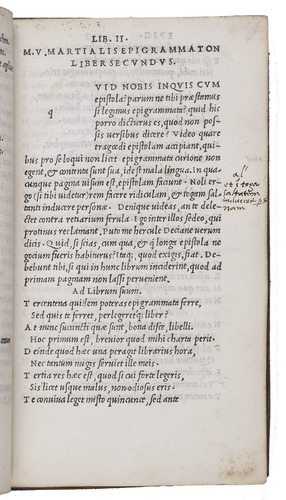 LIB. II.
M.V. MARTIALIS EPIGRAMMATON
LIBER SECUNDVS.
q VID NOBIS INQVIS CVM
epistola? parum ne tibi præstamus
si legimus epigrammata? quid hic
porro dicturus es, quod non pos-
sis uersibus dicere? Video quare
tragœdi epistolam accipiant, qui-
bus pro se loqui non licet: epigrammata curione non
egent, & contenta sunt sua, id est mala lingua. In qua-
cunque pagina uisum est, epistolam faciunt. Noli er-
go (si tibi uidetur) rem facere ridiculam, & togam sal-
tanti inducere personæ. Denique uideas, an te dele-
ctet contra retiarium ferula. Ego inter illos sedeo, qui
protinus reclamant. Puto me hercule Deciane uerum
dicis. Quid, si scias, cum qua, & q̃ longa epistola ne
gocium fueris habiturus? Itaq;, quod exigis, fiat. De-
bebunt tibi, si qui in hunc librum inciderint, quod ad
primam paginam non lassi peruenient.
al
et i toga
saltantem
Ad Librum suum.
T ercentena quidem poteras epigrammata ferre,
Sed quis te ferret, perlegeretq; liber?
A t nunc succincti quæ sunt, bona disce, libelli.
Hoc primum est, breuior quod mihi charta perit.
D einde quod hæc una peragit librarius hora,
Nec tantum nugis seruiet ille meis.
T ertia res hæc est, quod si cui forte legeris,
Sis licet usque malus, non odiosus eris.
T e conuiua leget misto quincunce, sed ante